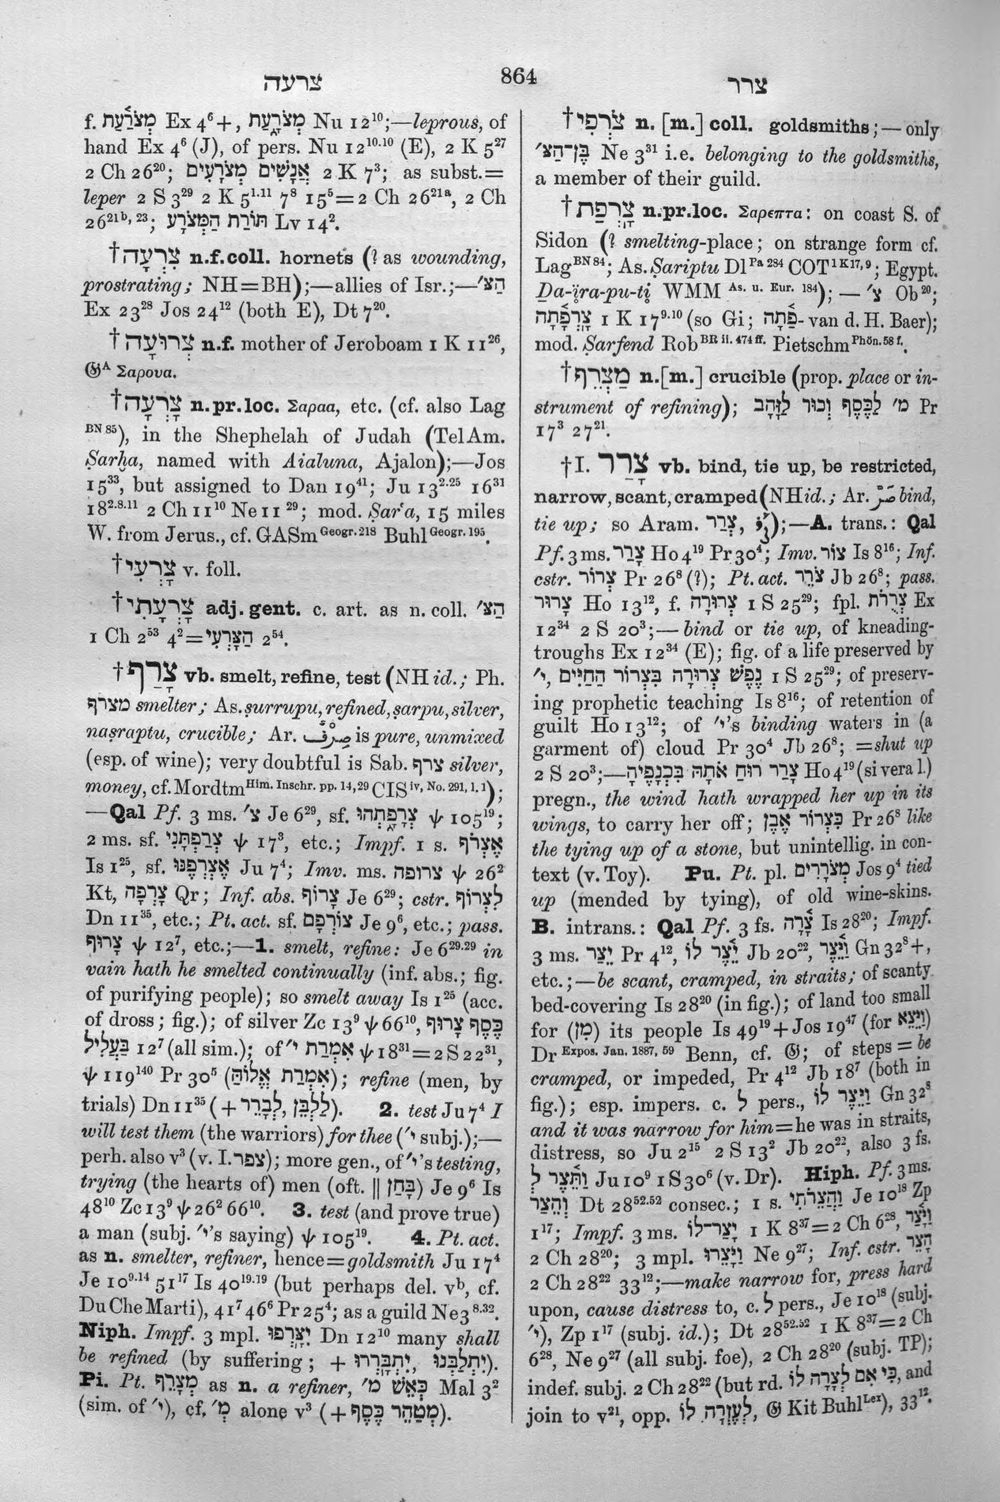 צרעה
864
צרר
f. מְצֹרַ֫עַת Ex 4⁶+, מְצֹרָ֑עַת Nu 12¹⁰;—leprous, of
hand Ex 4⁶ (J), of pers. Nu 12¹⁰·¹⁰ (E), 2 K 5²⁷
2 Ch 26²⁰; אֲנָשִׁים מְצֹרָעִים 2 K 7³; as subst.=
leper 2 S 3²⁹ 2 K 5¹·¹¹ 7⁸ 15⁵=2 Ch 26²¹ᵃ, 2 Ch
26²¹ᵇ,²³; תּוֹרַת הַמְּצֹרָע Lv 14².
†צִרְעָה n.f.coll. hornets (? as wounding,
prostrating; NH=BH);—allies of Isr.;—הַצּ׳
Ex 23²⁸ Jos 24¹² (both E), Dt 7²⁰.
†צְרוּעָה n.f. mother of Jeroboam 1 K 11²⁶,
𝔊ᴬ Σαρουα.
†צָרְעָה n.pr.loc. Σαραα, etc. (cf. also Lag
BN 85), in the Shephelah of Judah (Tel Am.
Ṣarḫa, named with Aialuna, Ajalon);—Jos
15³³, but assigned to Dan 19⁴¹; Ju 13²·²⁵ 16³¹
18²·⁸·¹¹ 2 Ch 11¹⁰ Ne 11²⁹; mod. Ṣarʿa, 15 miles
W. from Jerus., cf. GASm Geogr. 218 Buhl Geogr. 195.
†צָרְעִי v. foll.
†צָרְעָתִי adj.gent. c. art. as n. coll. הַצּ׳
1 Ch 2⁵³ 4²=הַצָּרְעִי 2⁵⁴.
†צָרַף vb. smelt, refine, test (NH id.; Ph.
מצרף smelter; As. ṣurrupu, refined, ṣarpu, silver,
naṣraptu, crucible; Ar. صِرْفٌ is pure, unmixed
(esp. of wine); very doubtful is Sab. צרף silver,
money, cf. Mordtm Him. Inschr. pp. 14, 29 CIS iv, No. 291, 1. 1);
—Qal Pf. 3 ms. צ׳ Je 6²⁹, sf. צְרָפָ֑תְהוּ ψ 105¹⁹;
2 ms. sf. צְרַפְתַּנִי ψ 17³, etc.; Impf. 1 s. אֶצְרֹף
Is 1²⁵, sf. אֶצְרְפֶנּוּ Ju 7⁴; Imv. ms. צרופה ψ 26²
Kt, צָרְפָה Qr; Inf. abs. צָרוֹף Je 6²⁹; cstr. לִצְרוֹף
Dn 11³⁵, etc.; Pt. act. sf. צוֹרְפָם Je 9⁶, etc.; pass.
צָרוּף ψ 12⁷, etc.;—1. smelt, refine: Je 6²⁹·²⁹ in
vain hath he smelted continually (inf. abs.; fig.
of purifying people); so smelt away Is 1²⁵ (acc.
of dross; fig.); of silver Zc 13⁹ ψ 66¹⁰, כֶּסֶף צָרוּף
בַּעֲלִיל 12⁷ (all sim.); of אִמְרַת י׳ ψ 18³¹=2 S 22³¹,
ψ 119¹⁴⁰ Pr 30⁵ (אִמְרַת אֱלוֹהַּ); refine (men, by
trials) Dn 11³⁵ (+לְבָרֵר, לַלְבֵּן). 2. test Ju 7⁴ I
will test them (the warriors) for thee (י׳ subj.);—
perh. also v³ (v. I. צפר); more gen., of י׳'s testing,
trying (the hearts of) men (oft. ‖ בָּחַן) Je 9⁶ Is
48¹⁰ Zc 13⁹ ψ 26² 66¹⁰. 3. test (and prove true)
a man (subj. י׳'s saying) ψ 105¹⁹. 4. Pt. act.
as n. smelter, refiner, hence=goldsmith Ju 17⁴
Je 10⁹·¹⁴ 51¹⁷ Is 40¹⁹·¹⁹ (but perhaps del. vᵇ, cf.
Du Che Marti), 41⁷ 46⁶ Pr 25⁴; as a guild Ne 3⁸·³².
Niph. Impf. 3 mpl. יִצָּרְפוּ Dn 12¹⁰ many shall
be refined (by suffering; + יִתְבָּרֲרוּ, יִתְלַבְּנוּ).
Pi. Pt. מְצָרֵף as n. a refiner, כְּאֵשׁ מ׳ Mal 3²
(sim. of י׳), cf. מְ׳ alone v³ (+מְטַהֵר כֶּסֶף).
†צֹרְפִי n. [m.] coll. goldsmiths;—only
בֶּן־הַצּ׳ Ne 3³¹ i.e. belonging to the goldsmiths,
a member of their guild.
†צָרְפַת n.pr.loc. Σαρεπτα: on coast S. of
Sidon (? smelting-place; on strange form cf.
Lag BN 84; As. Ṣariptu Dl Pa 284 COT 1 K 17, 9; Egypt.
Ḏa-ïra-pu-tị WMM As. u. Eur. 184);—צ׳ Ob²⁰;
צָֽרְפַ֫תָה 1 K 17⁹·¹⁰ (so Gi; פָ֫תָה- van d. H. Baer);
mod. Ṣarfend Rob BR ii. 474 ff. Pietschm Phön. 58 f.
†מַצְרֵף n.[m.] crucible (prop. place or in-
strument of refining); מ׳ לַכֶּסֶף וְכוּר לַזָּהָב Pr
17³ 27²¹.
†I. צָרַר vb. bind, tie up, be restricted,
narrow, scant, cramped (NH id.; Ar. صَرَّ bind,
tie up; so Aram. צְרַר, );—A. trans.: Qal
Pf. 3 ms. צָרַר Ho 4¹⁹ Pr 30⁴; Imv. צוֹר Is 8¹⁶; Inf.
cstr. צְרוֹר Pr 26⁸ (?); Pt. act. צֹרֵר Jb 26⁸; pass.
צָרוּר Ho 13¹², f. צְרוּרָה 1 S 25²⁹; fpl. צְרֻרֹת Ex
12³⁴ 2 S 20³;—bind or tie up, of kneading-
troughs Ex 12³⁴ (E); fig. of a life preserved by
י׳, נֶפֶשׁ צְרוּרָה בִּצְרוֹר הַחַיִּים 1 S 25²⁹; of preserv-
ing prophetic teaching Is 8¹⁶; of retention of
guilt Ho 13¹²; of י׳'s binding waters in (a
garment of) cloud Pr 30⁴ Jb 26⁸; =shut up
2 S 20³;—צָרַר רוּחַ אֹתָהּ בִּכְנָפֶיהָ Ho 4¹⁹ (si vera l.)
pregn., the wind hath wrapped her up in its
wings, to carry her off; כִּצְרוֹר אֶבֶן Pr 26⁸ like
the tying up of a stone, but unintellig. in con-
text (v. Toy). Pu. Pt. pl. מְצֹרָרִים Jos 9⁴ tied
up (mended by tying), of old wine-skins.
B. intrans.: Qal Pf. 3 fs. צָ֫רָה Is 28²⁰; Impf.
3 ms. יֵצַר Pr 4¹², יֵ֫צֶר לוֹ Jb 20²², וַיֵּ֫צֶר Gn 32⁸+,
etc.;—be scant, cramped, in straits; of scanty
bed-covering Is 28²⁰ (in fig.); of land too small
for (מִן) its people Is 49¹⁹+Jos 19⁴⁷ (for וַיֵּצֵא)
Dr Expos. Jan. 1887, 59 Benn, cf. 𝔊; of steps=be
cramped, or impeded, Pr 4¹² Jb 18⁷ (both in
fig.); esp. impers. c. לְ pers., וַיֵּ֫צֶר לוֹ Gn 32⁸
and it was narrow for him=he was in straits,
distress, so Ju 2¹⁵ 2 S 13² Jb 20²², also 3 fs.
וַתֵּ֫צֶר לְ Ju 10⁹ 1 S 30⁶ (v. Dr). Hiph. Pf. 3 ms.
וְהֵצַר Dt 28⁵²·⁵² consec.; 1 s. וַהֲצֵרֹתִי Je 10¹⁸ Zp
1¹⁷; Impf. 3 ms. יָצַר־לוֹ 1 K 8³⁷=2 Ch 6²⁸, וַיָּ֫צַר
2 Ch 28²⁰; 3 mpl. וַיָּצֵרוּ Ne 9²⁷; Inf. cstr. הָצֵר
2 Ch 28²² 33¹²;—make narrow for, press hard
upon, cause distress to, c. לְ pers., Je 10¹⁸ (subj.
י׳), Zp 1¹⁷ (subj. id.); Dt 28⁵²·⁵² 1 K 8³⁷=2 Ch
6²⁸, Ne 9²⁷ (all subj. foe), 2 Ch 28²⁰ (subj. TP);
indef. subj. 2 Ch 28²² (but rd. כִּי אִם לְצָרָה לוֹ, and
join to v²¹, opp. לְעֶזְרָה לוֹ, 𝔊 Kit Buhl Lex), 33¹².